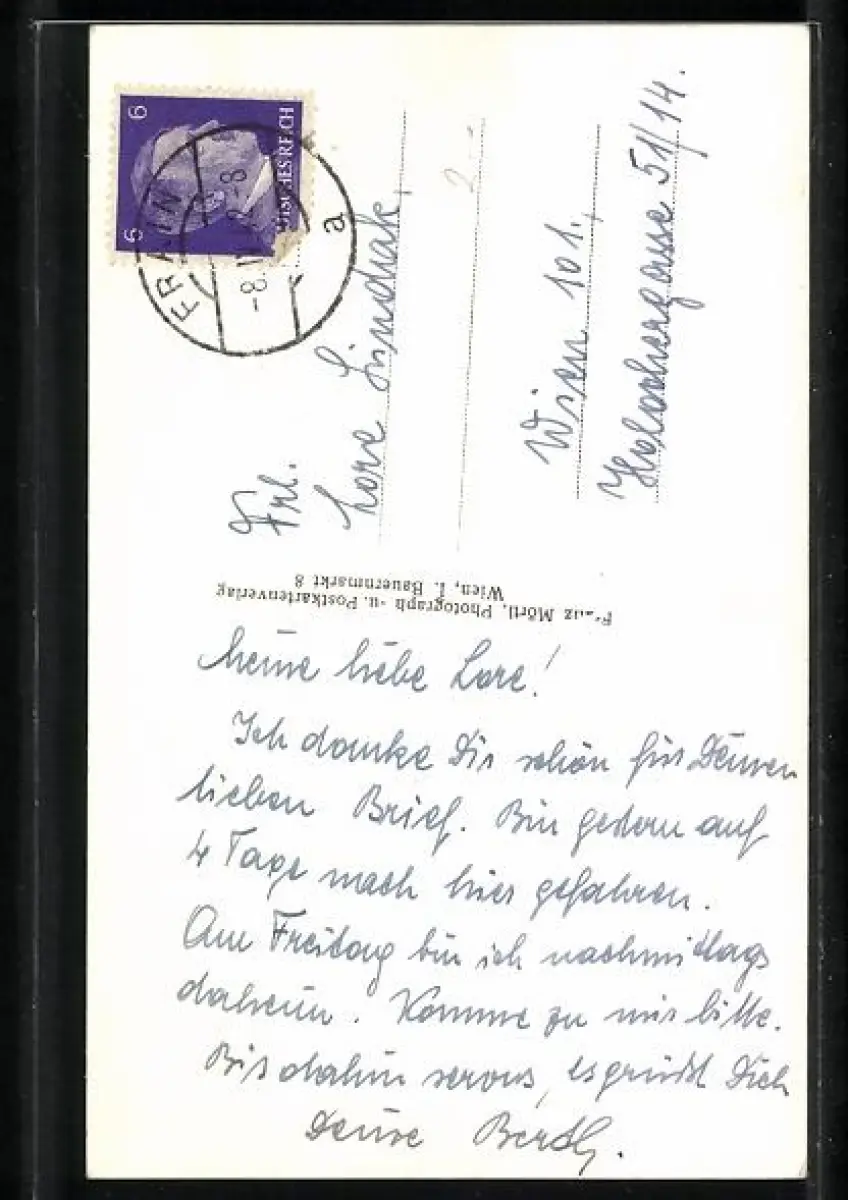 6 6
DEUTSCHES REICH
FRAIN
a
Frl.
Lore Lindiak,
Wien 101.,
Holochergasse 51/14.
2.-
Franz Mörtl, Photograph- u. Postkartenverlag
Wien, I. Bauernmarkt 8
Meine liebe Lore!
Ich danke Dir schön für Deinen
lieben Brief. Bin gestern auf
4 Tage nach hier gefahren.
Am Freitag bin ich nachmittags
daheim. Komme zu mir bitte.
Bis dahin servus, es grüßt Dich
Deine Berth.